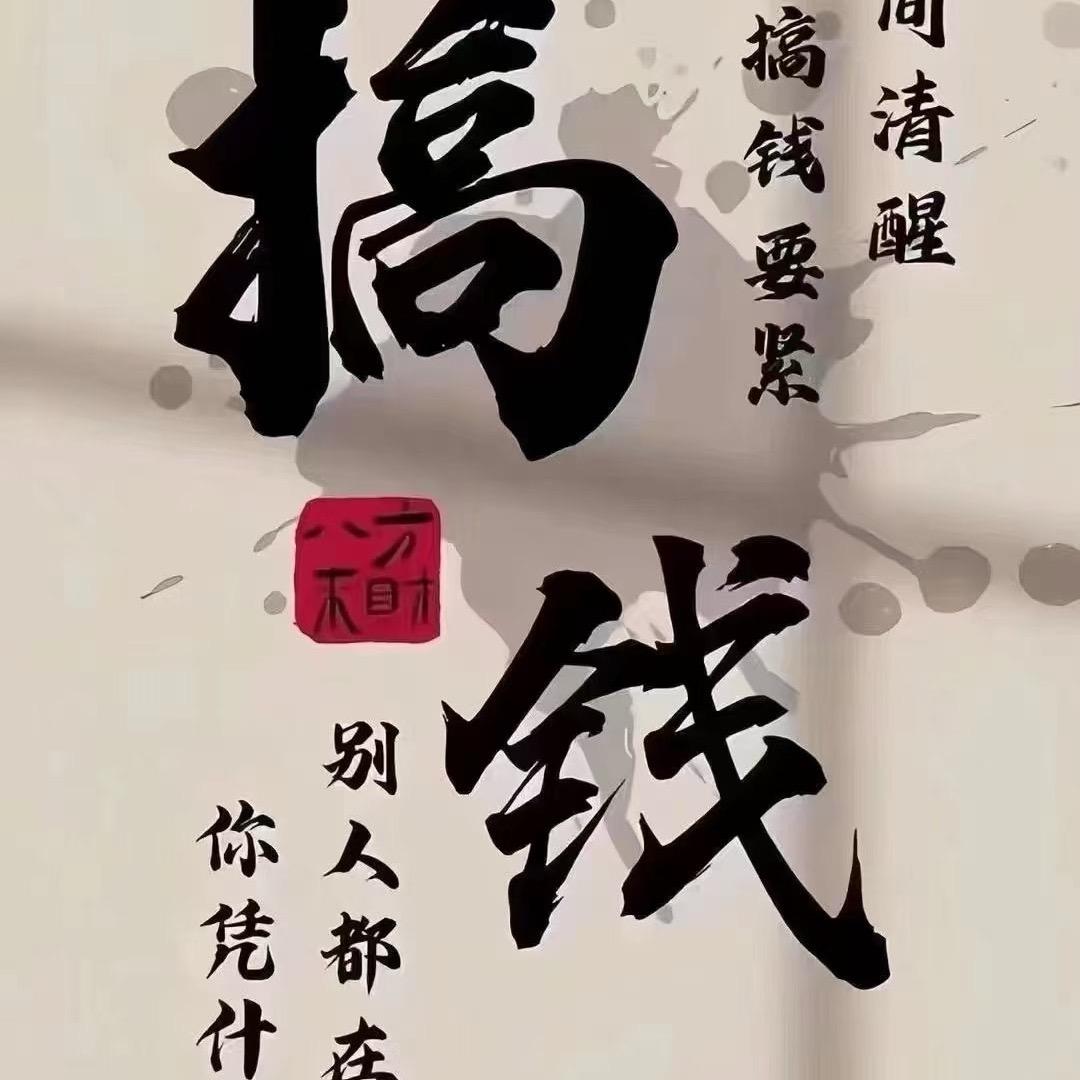 间清醒
搞钱要紧
搞钱
八方
来财
别人都在
你凭什